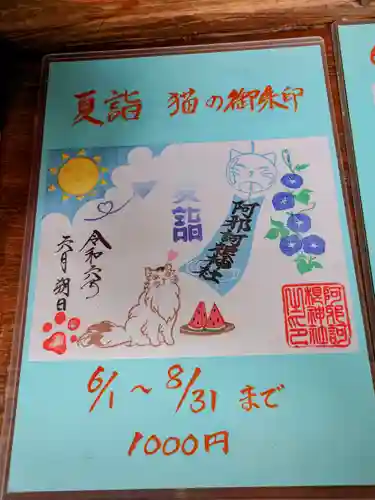 夏詣 猫の御朱印
夏詣
阿邪訶根神社
令和六年
六月朔日
阿邪訶
根神社
之印
6/1〜8/31まで
1000円